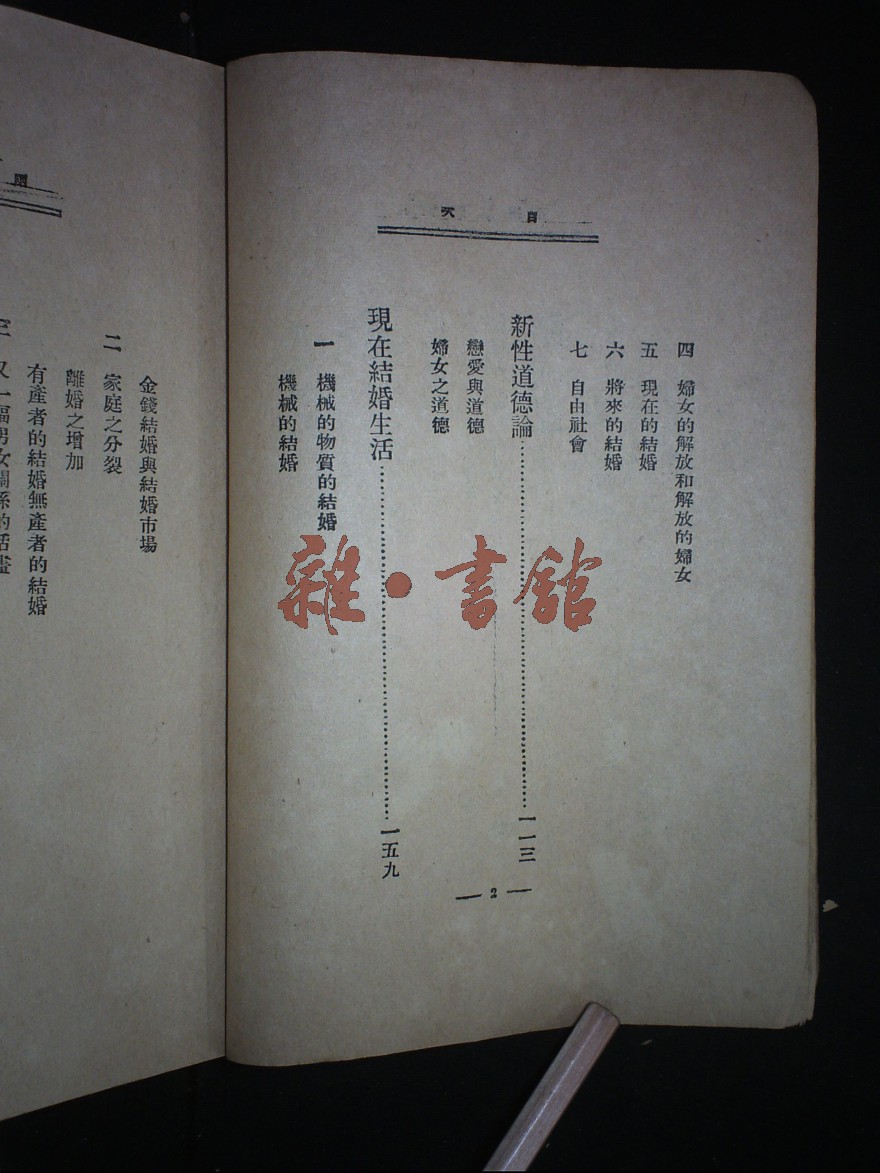 目次
四　婦女的解放和解放的婦女
五　現在的結婚
六　將來的結婚
七　自由社會
新性道德論……一一三
戀愛與道德
婦女之道德
現在結婚生活……一五九
一　機械的物質的結婚
機械的結婚
— 2 —
金錢結婚與結婚市場
二　家庭之分裂
離婚之增加
有產者的結婚無產者的結婚
雜·書館